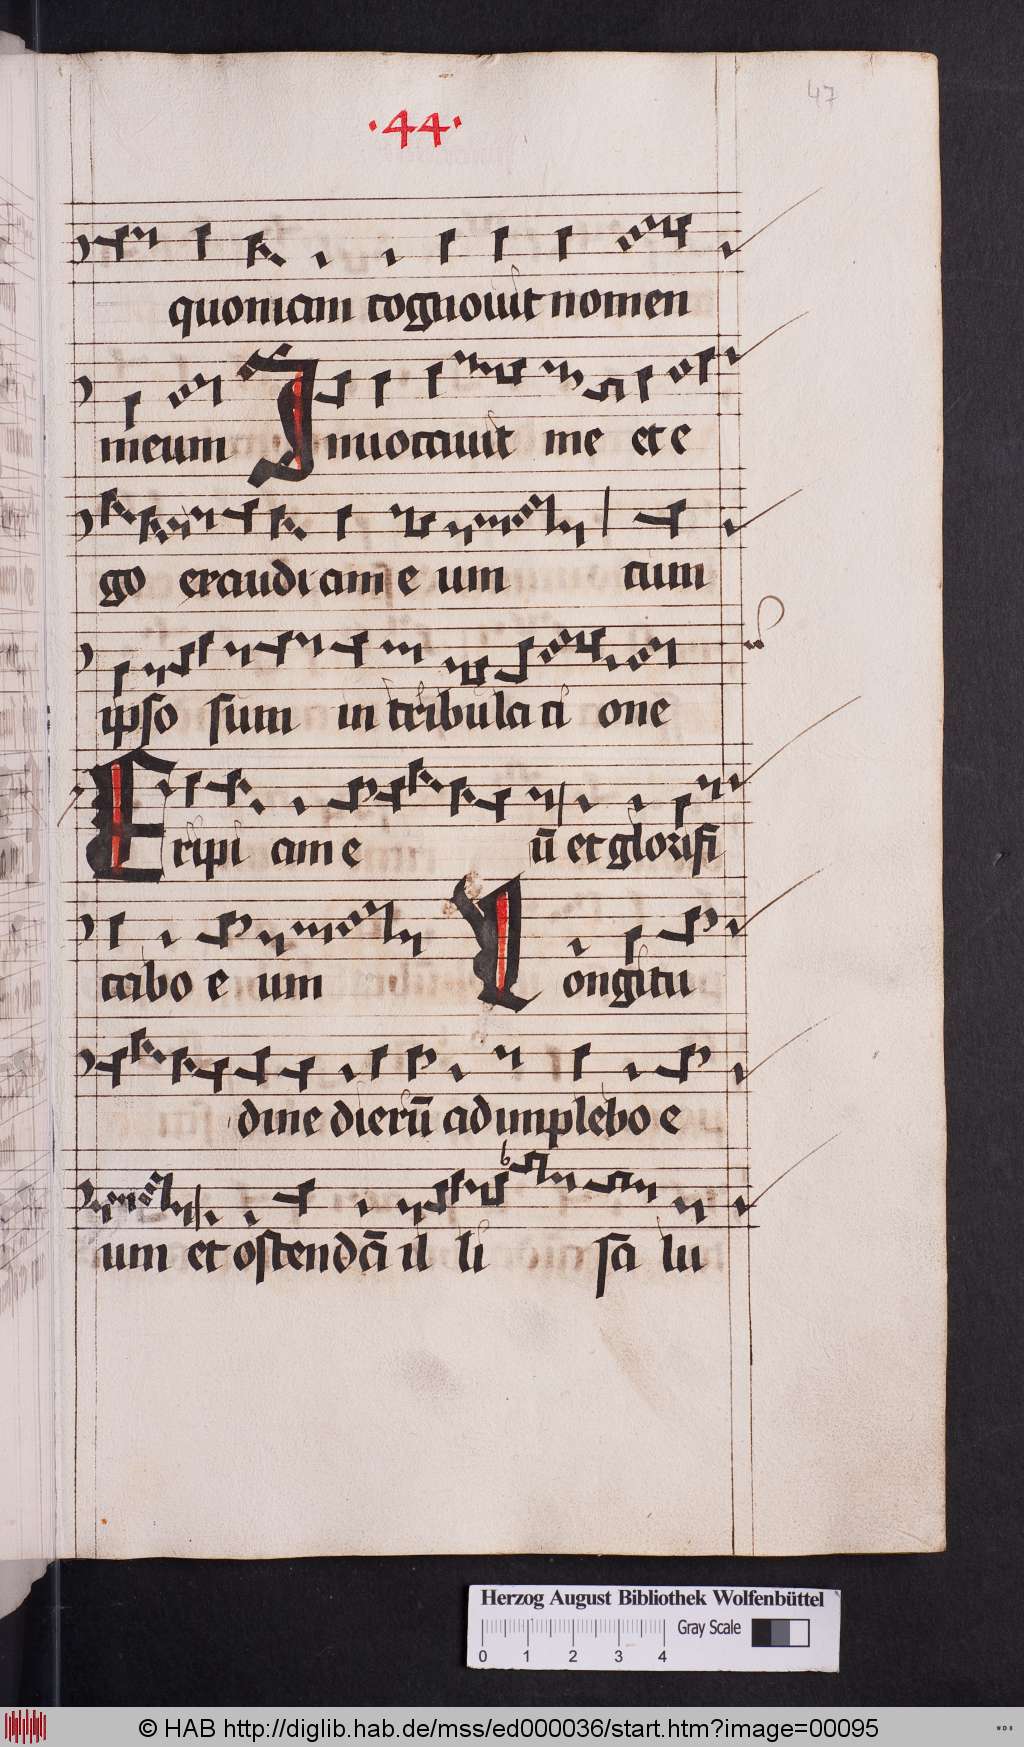 47
·44·
quoniam cognouit nomen
meum Inuocauit me et e
go exaudiam e um cum
ipso sum in tribulati one
Eripi am e ū et glorifi
cabo e um Longitu
dine dierū adimplebo e
um et ostendā il li sā lu
Herzog August Bibliothek Wolfenbüttel
Gray Scale
0 1 2 3 4
© HAB http://diglib.hab.de/mss/ed000036/start.htm?image=00095